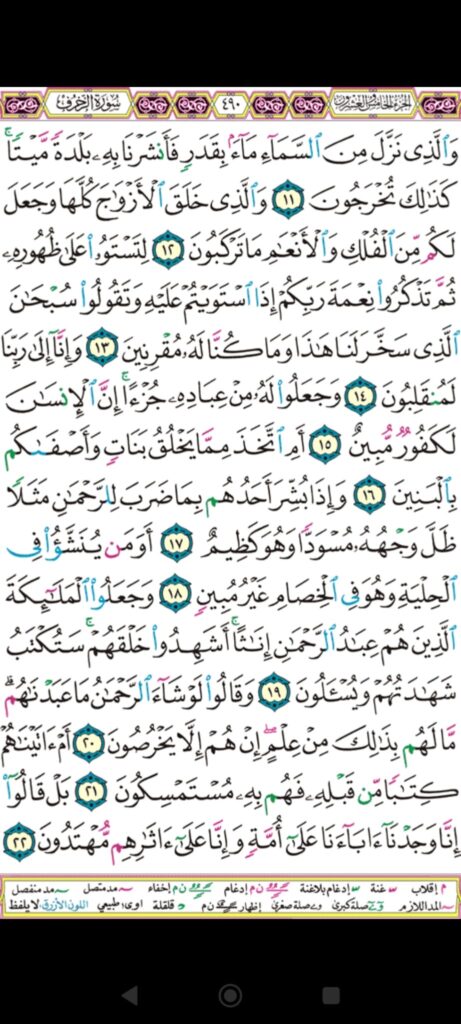 الجزء الخامس والعشرون ٤٩٠ سورة الزخرف
وَٱلَّذِى نَزَّلَ مِنَ ٱلسَّمَآءِ مَآءَۢ بِقَدَرٍ فَأَنشَرْنَا بِهِۦ بَلْدَةً مَّيْتًاۚ
كَذَٰلِكَ تُخْرَجُونَ ١١ وَٱلَّذِى خَلَقَ ٱلْأَزْوَٰجَ كُلَّهَا وَجَعَلَ
لَكُم مِّنَ ٱلْفُلْكِ وَٱلْأَنْعَٰمِ مَا تَرْكَبُونَ ١٢ لِتَسْتَوُۥا۟ عَلَىٰ ظُهُورِهِۦ
ثُمَّ تَذْكُرُوا۟ نِعْمَةَ رَبِّكُمْ إِذَا ٱسْتَوَيْتُمْ عَلَيْهِ وَتَقُولُوا۟ سُبْحَٰنَ
ٱلَّذِى سَخَّرَ لَنَا هَٰذَا وَمَا كُنَّا لَهُۥ مُقْرِنِينَ ١٣ وَإِنَّآ إِلَىٰ رَبِّنَا
لَمُنقَلِبُونَ ١٤ وَجَعَلُوا۟ لَهُۥ مِنْ عِبَادِهِۦ جُزْءًاۚ إِنَّ ٱلْإِنسَٰنَ
لَكَفُورٌ مُّبِينٌ ١٥ أَمِ ٱتَّخَذَ مِمَّا يَخْلُقُ بَنَاتٍ وَأَصْفَىٰكُم
بِٱلْبَنِينَ ١٦ وَإِذَا بُشِّرَ أَحَدُهُم بِمَا ضَرَبَ لِلرَّحْمَٰنِ مَثَلًا
ظَلَّ وَجْهُهُۥ مُسْوَدًّا وَهُوَ كَظِيمٌ ١٧ أَوَمَن يُنَشَّؤُا۟ فِى
ٱلْحِلْيَةِ وَهُوَ فِى ٱلْخِصَامِ غَيْرُ مُبِينٍ ١٨ وَجَعَلُوا۟ ٱلْمَلَٰٓئِكَةَ
ٱلَّذِينَ هُمْ عِبَٰدُ ٱلرَّحْمَٰنِ إِنَٰثًاۚ أَشَهِدُوا۟ خَلْقَهُمْۚ سَتُكْتَبُ
شَهَٰدَتُهُمْ وَيُسْـَٔلُونَ ١٩ وَقَالُوا۟ لَوْ شَآءَ ٱلرَّحْمَٰنُ مَا عَبَدْنَٰهُمۗ
مَّا لَهُم بِذَٰلِكَ مِنْ عِلْمٍۖ إِنْ هُمْ إِلَّا يَخْرُصُونَ ٢٠ أَمْ ءَاتَيْنَٰهُمْ
كِتَٰبًا مِّن قَبْلِهِۦ فَهُم بِهِۦ مُسْتَمْسِكُونَ ٢١ بَلْ قَالُوٓا۟
إِنَّا وَجَدْنَآ ءَابَآءَنَا عَلَىٰٓ أُمَّةٍ وَإِنَّا عَلَىٰٓ ءَاثَٰرِهِم مُّهْتَدُونَ ٢٢
م إقلاب غنة إدغام بلاغنة ن م إدغام ن م إخفاء مد متصل مد منفصل
المد اللازم صلة كبرى صلة صغرى إظهار ن م قلقلة اوى؛ طبيعي اللون الأزرق: لا يلفظ